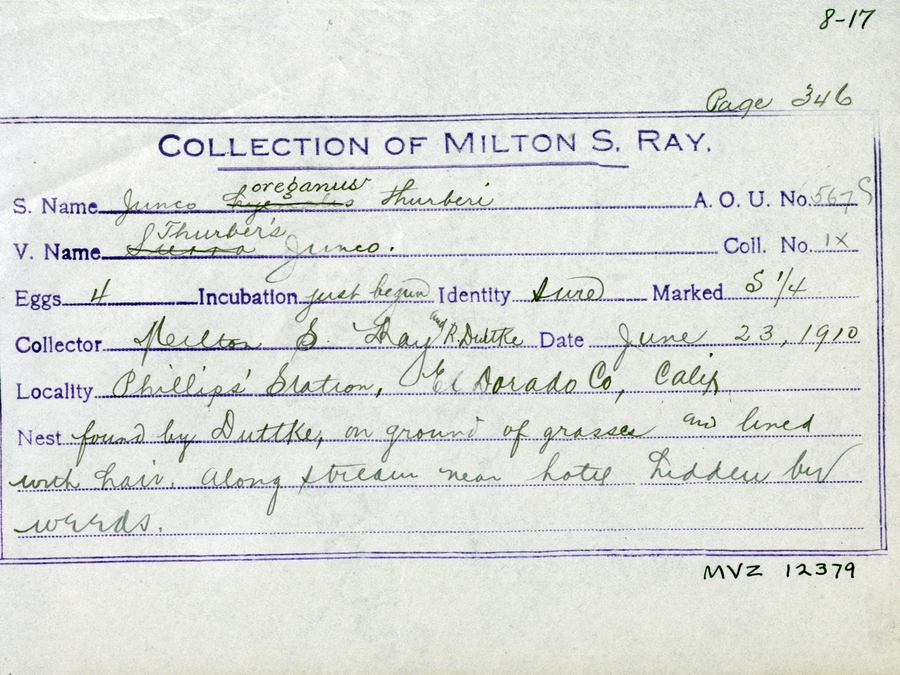 8-17
Page 346
COLLECTION OF MILTON S. RAY.
S. Name Junco hyemalis oreganus thurberi A. O. U. No. 567g
V. Name Sierra Thurber's Junco. Coll. No. 1X
Eggs 4 Incubation just begun Identity sure Marked 5 1/4
Collector Milton S. Ray and R. Duttke Date June 23, 1910
Locality Phillips' Station, El Dorado Co, Calif
Nest found by Duttke, on ground of grasses and lined
with hair. along stream near hotel hidden by
weeds.
MVZ 12379